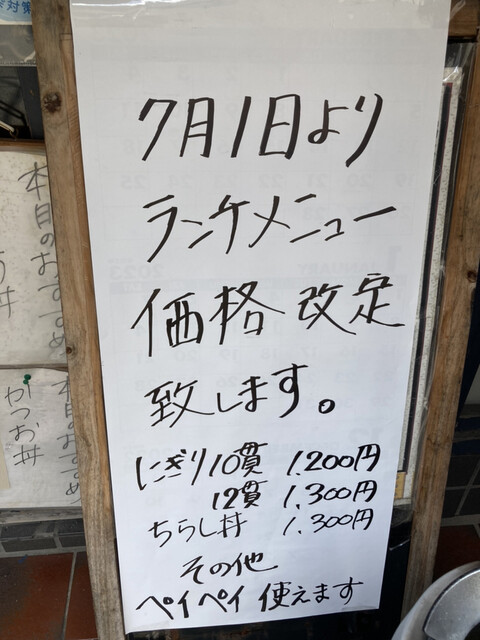 7月1日より
ランチメニュー
価格改定
致します。
にぎり10貫 1,200円
12貫 1,300円
ちらし丼 1,300円
その他
ペイペイ使えます
本日のおすすめ
本日のおすすめ
かつお丼